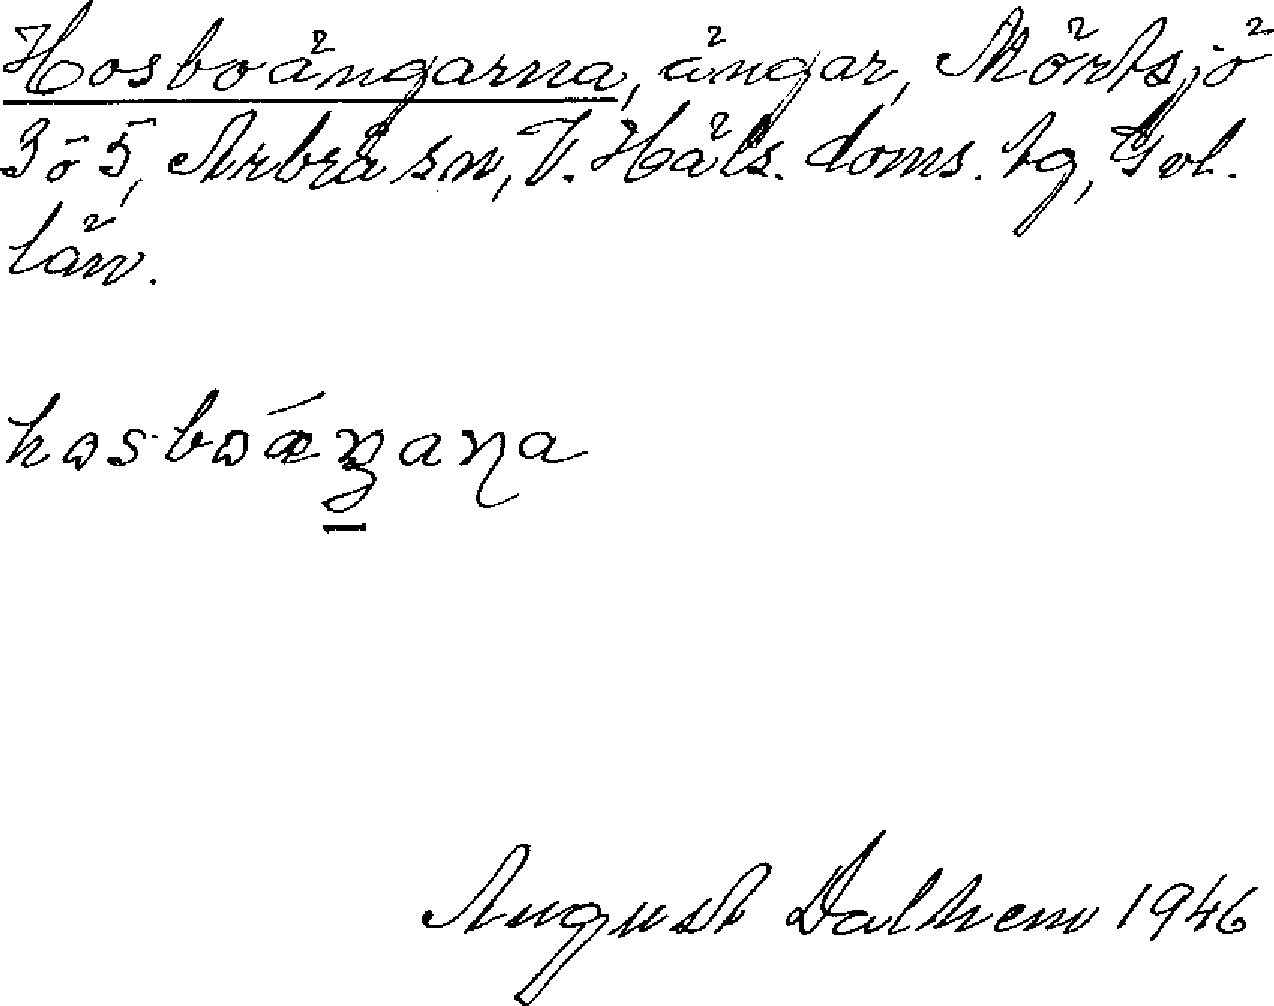 Hosboängarna, ängar, Mörtsjö
3 o 5, Arbrå sn, V. Häls. doms. tg, Gvl.
län.
hɷsboǽŋ̠aɳa
August Dalhem 1946